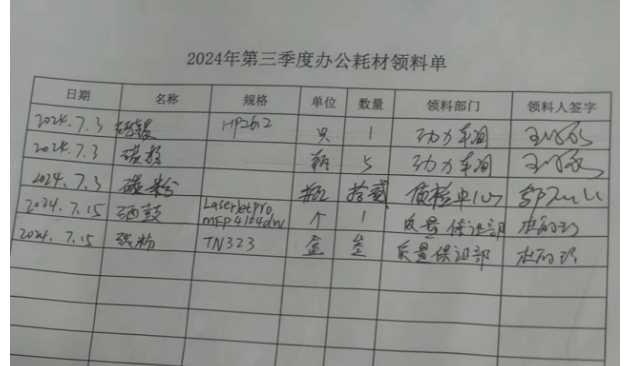 2024年第三季度办公耗材领料单
日期 名称 规格 单位 数量 领料部门 领料人签字
2024.7.3 硒鼓 HP2612 只 1 动力车间
2024.7.3 碳粉 瓶 5 动力车间
2024.7.3 碳粉 拾贰 质检中心
2024.7.15 硒鼓 Laserjetpro 个 1 质量保证部
MFP4104dw
2024.7.15 碳粉 TN323 盒 叁 质量保证部